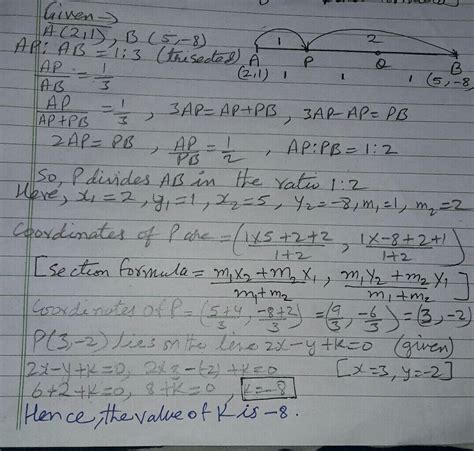 Given →
A(2,1), B(5,-8)
AP: AB = 1:3 (trisected)
1 2
A P Q B
(2,1) 1 1 1 (5,-8)
AP/AB = 1/3
AP/AP+PB = 1/3, 3AP=AP+PB, 3AP-AP=PB
2AP=PB, AP/PB = 1/2, AP:PB=1:2
So, P divides AB in the ratio 1:2
Here, x₁=2, y₁=1, x₂=5, y₂=-8, m₁=1, m₂=2
Coordinates of P are = (1×5+2×2/1+2, 1×-8+2×1/1+2)
[Section formula = m₁x₂+m₂x₁/m₁+m₂, m₁y₂+m₂y₁/m₁+m₂]
Coordinates of P = (5+4/3, -8+2/3) = (9/3, -6/3) = (3,-2)
P(3,-2) lies on the line 2x-y+k=0 (given)
2x-y+k=0, 2×3-(-2)+k=0 [x=3, y=-2]
6+2+k=0, 8+k=0, k=-8
Hence, the value of K is -8.